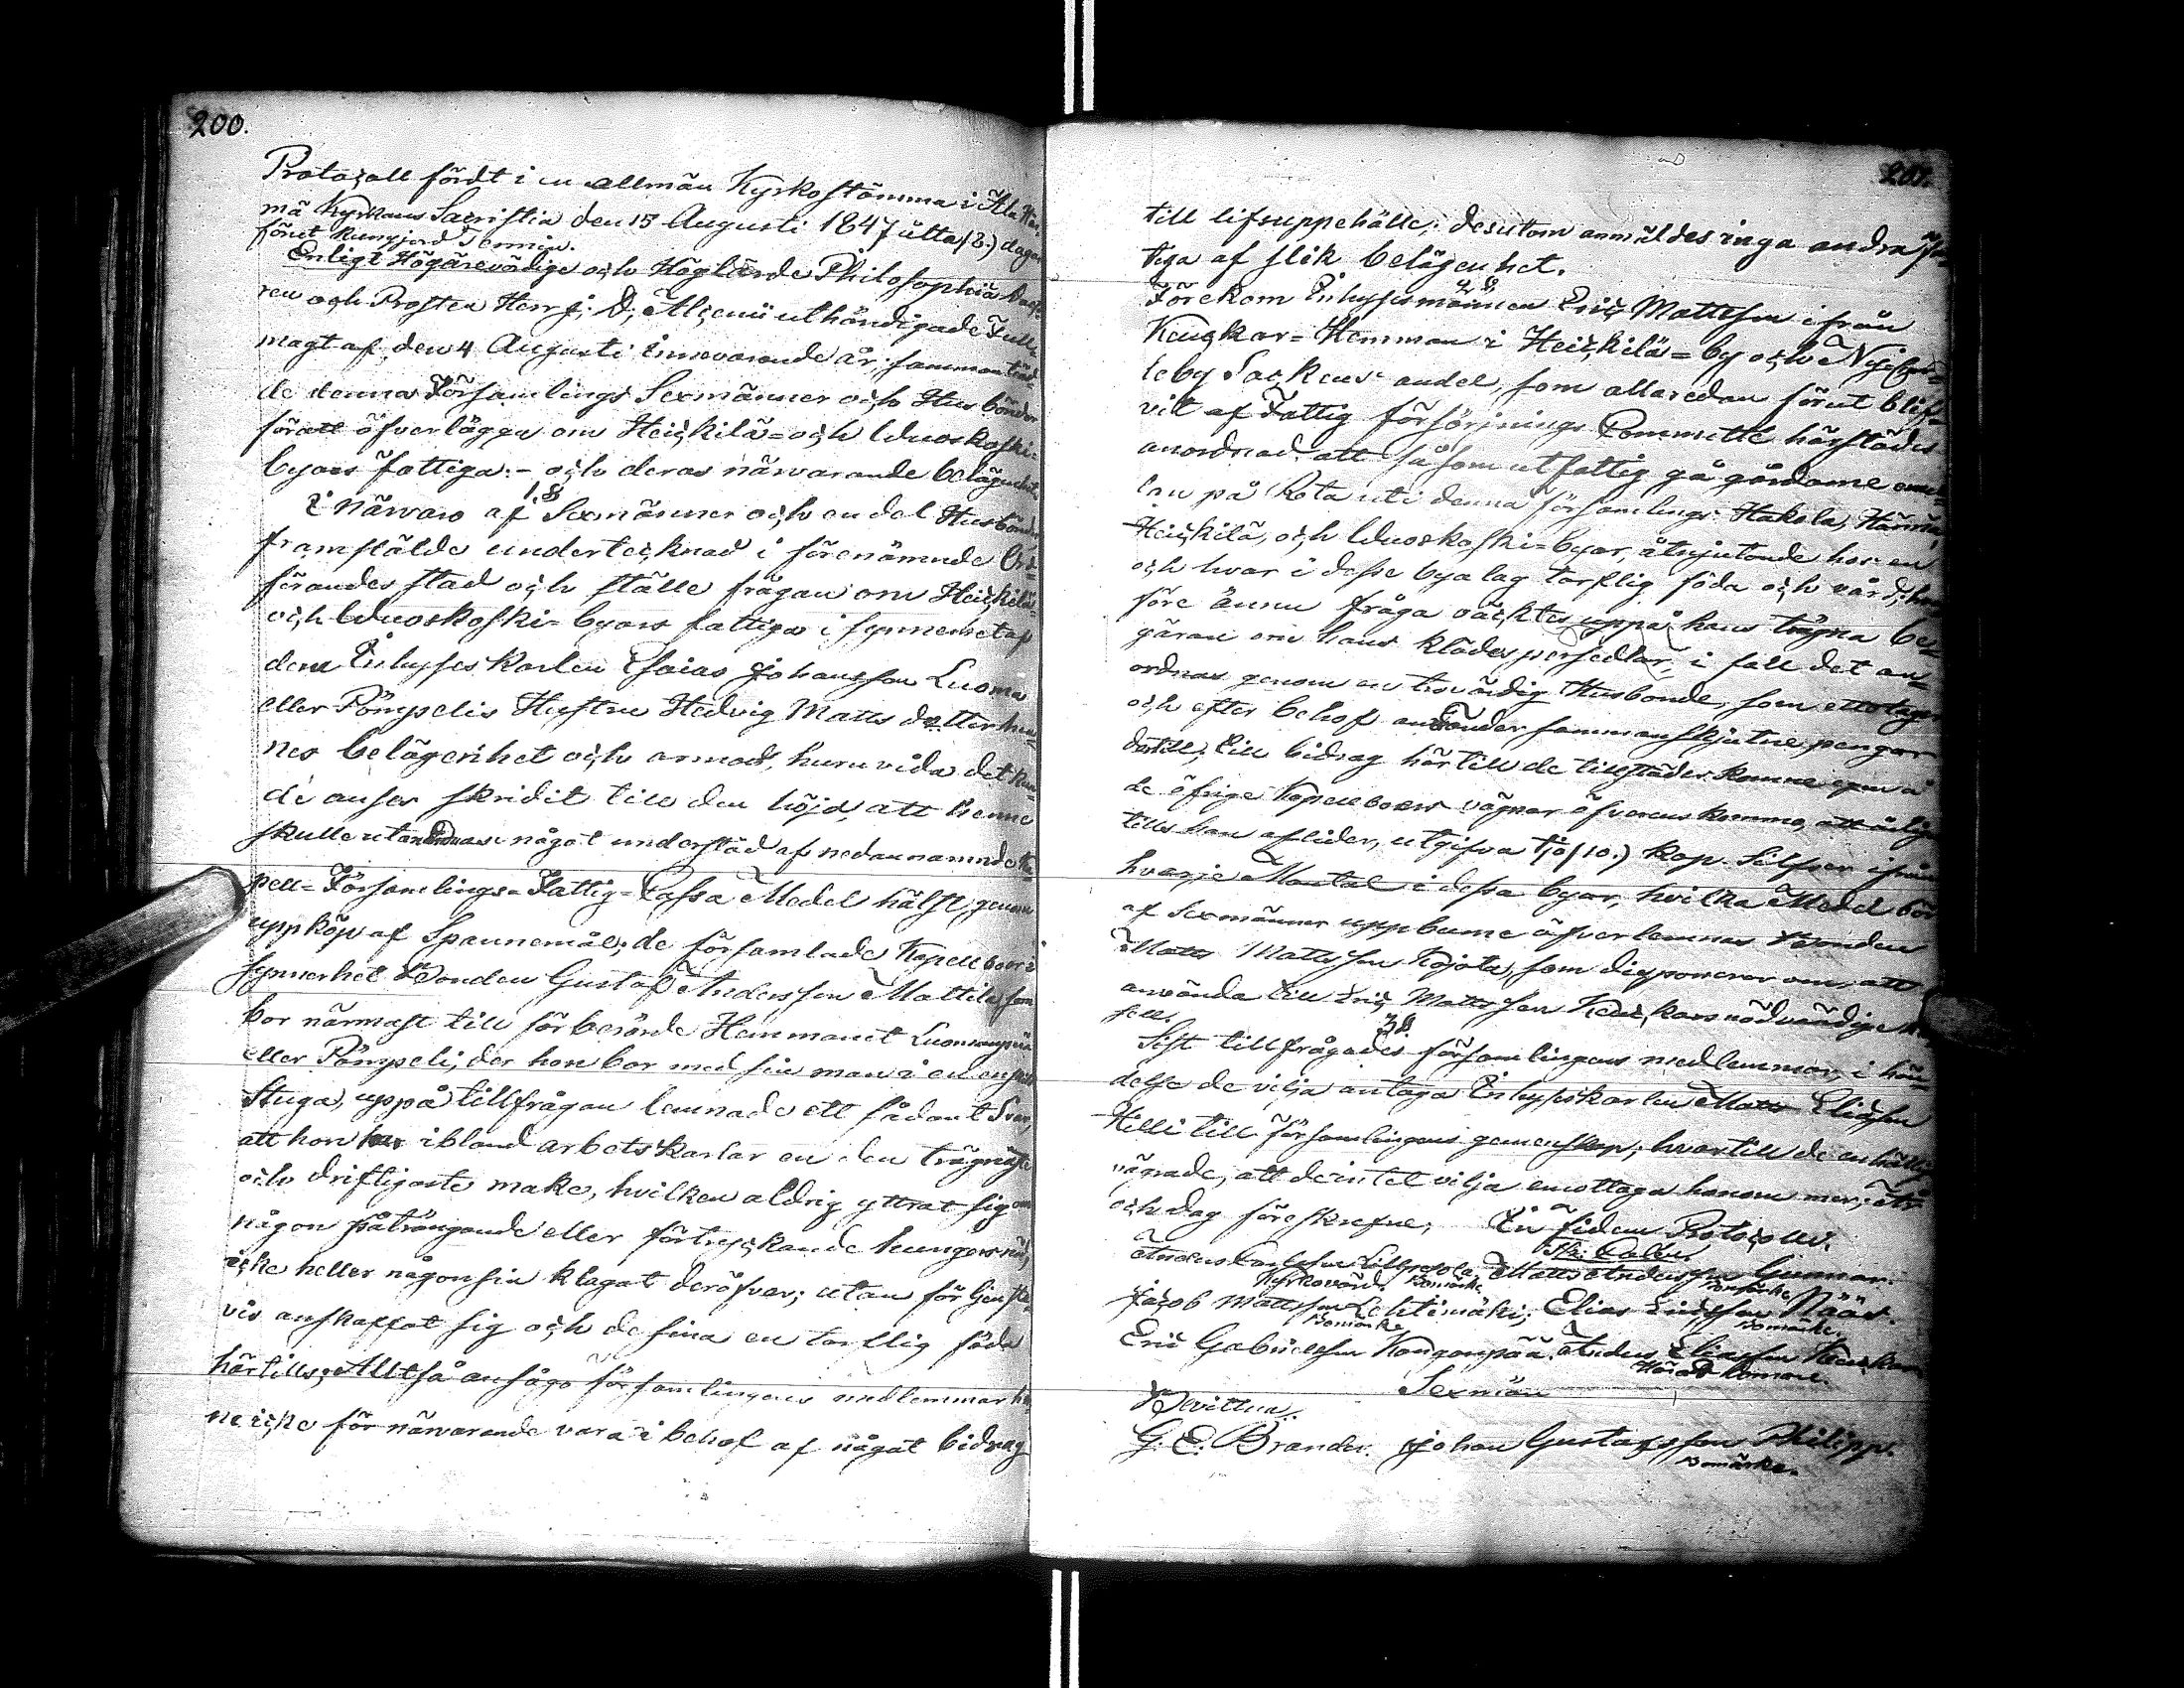 200.
Protocoll fördt i en allmän Kyrkostämma i Ala Här-
mä Kyrkans Sacristia den 15 Augusti 1847 åtta (8.) dagar
förut kungjord Termin.
Enligt Högärevördige och Höglärde Philosophiæ
ren och Prosten Herr J. D. Alcenii uthändigade Full-
magt af den 4 Augusti innevarande år, sammanträd-
de denna Församlings Sexmänner och Husbönder
föratt öfverlägga om Heickilä- och Wuoskoski-
byars fattiga - och deras närvarande belägenhet.
1. §
I närvaro af Sexmänner och en del Husbönder
framstälde undertecknad i förenämnde Ord-
förandes stad och ställe frågan om Heickilä-
och Wuoskoski- byars fattiga i synnerhet af
dem Inhyses Karlen Esaias Johansson Luoma
eller Pömpelis Hustru Hedvig Matts dotter hen-
nes belägenhet och armod, huruvida det kun-
de anses skridit till den höjd, att henne
skulle utandnas något understöd af nedannämnde Ka-
pell- Församlings- Fattig- Cassa Medel hälst, genom
uppköp af Spannemål; de församlade Kapellboer i
synnerhet Bonden Gustaf Andersson Mattila, som
bor närmast till förberörde Hemmanet
eller Pömpeli, der hon bor med sin man i en enskild
Stuga, uppå tillfrågan lemnade ett sådant Svar,
att hon har ibland arbetskarlar en den trägnaste
och driftigaste make, hvilken aldrig yttrat sig om
någon påträngande eller förtryckande hungersnöd,
icke heller någonsin klagat deröfver; utan förtjenste-
vis anskaffat sig och de sina en tarflig föda
härtills; Alltså ansågo församlingens medlemmar hen-
ne icke för närvarande vara i behof af något bidrag
201.
till lifsuppehälle, desutom anmäldes inga andra fat-
tiga af slik belägenhet.
2. §
Förekom Inhysesmannen Eric Mattsson ifrån
Keuckar- Hemman i Heickilä- by och
leby Sackeus andel, som allaredan förut blif-
vit af Fattig försörjnings Committé härstädes
anordnad att såsom utfattig gå gårdarne emel-
lan på Rota uti denna församlings Hakola, Härmä,
Heickilä, och Wuoskoski- byar, åtnjutande hos en
och hvar i desse byalag tarflig föda och vård, hvar-
före ännu fråga väcktes uppå hans trägna be-
gäran om hans klädespersedlar, i fall det an-
ordnas genom en trovärdig Husbonde, som
och efter behof använder sammanskjutne pengar
dertill; Till bidrag härtill de tillstädes komne egna å
de öfrige Kapellboers vägnar öfverenskommo, att årligen
tills han aflider, utgifva tjo (10.) kop. Silfver ifrån
hvarje Mantal i dessa byar, hvilka Medel bör
af Sexmänner uppburne öfverlemnas Bonden
Matts Mattsson Kojola, som disponerar om, att
använda till Eric Mattsson Keuckars nödvändiga
fall.
3 §.
Sist tillfrågades församlingens medlemmar, i hän-
delse de vilja antaga Inhyseskarlen Matts Eliasson
Killi till församlingens gemenskap; hvartill de
vägrade, att de intet vilja emottaga honom mer; År
och dag föreskrefne; In fidem Protocolli.
Anders Carlsson Matts Andersson Gunnar.
Kyrkovärd. Bomärke Bomärke
Jacob Mattsson Lehtimäki; Elias Ericsson Nääs.
Bomärke Bomärke.
Eric Gabrielsson Kangaspää. Anders Eliasson Keuckar
Härads domare.
Sexmän
Bevittna..
G. E. Brander. Johan Gustafsson Philipp.
Bomärke.